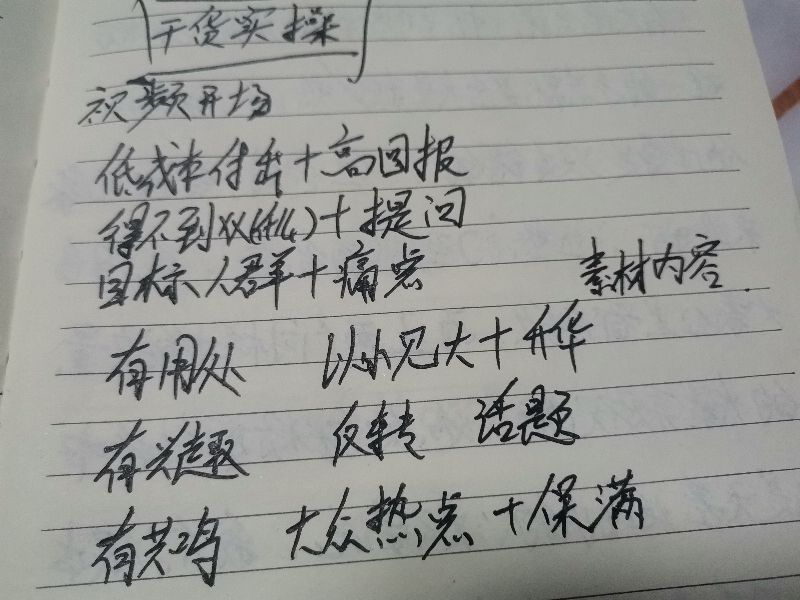 干货实操
视频开场
低成本付出+高回报
得不到XX(什么)+提问
目标人群+痛点
素材内容
有用处 以小见大+升华
有兴趣 反转 话题
有共鸣 大众热点+保满